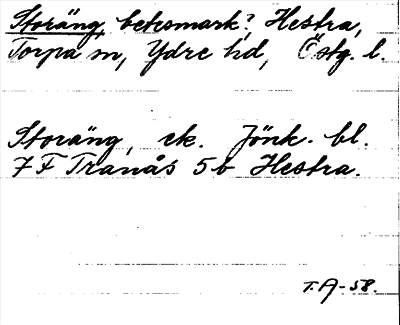 Storäng, betesmark? Hestra,
Torpa sn, Ydre hd, Östg. l.
Storäng, ek. Jönk. bl.
7 F Tranås 5 b Hestra.
T.A-58.